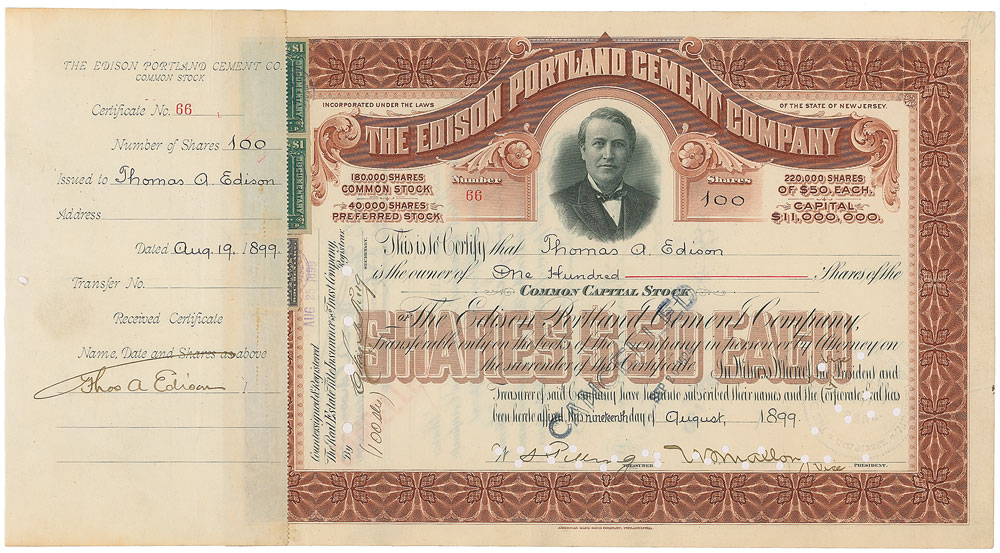 THE EDISON PORTLAND CEMENT CO.
COMMON STOCK
Certificate No. 66
Number of Shares 100
Issued to Thomas A. Edison
Address
Dated Aug. 19. 1899.
Transfer No.
Received Certificate
Name, Date and Shares as above
Thos A Edison
$1
DOCUMENTARY
$1
DOCUMENTARY
THE EDISON PORTLAND CEMENT COMPANY
INCORPORATED UNDER THE LAWS
OF THE STATE OF NEW JERSEY.
180,000 SHARES
COMMON STOCK
40,000 SHARES
PREFERRED STOCK
Number
66
Shares
100
220,000 SHARES
OF $50. EACH.
CAPITAL
$11,000,000.
This is to Certify that Thomas A. Edison
is the owner of One Hundred Shares of the
COMMON CAPITAL STOCK
OF The Edison Portland Cement Company,
SHARES $50 EACH
transferable only on the books of the Company in person or by Attorney on
the surrender of this Certificate.
In Witness Whereof, the Vice President and
Treasurer of said Company have hereunto subscribed their names and the Corporate Seal has
been hereto affixed, this nineteenth day of August, 1899.
W. S. Pilling
TREASURER
W. S. Mallory
Vice PRESIDENT.
Countersigned & Registered
The Real Estate Title Insurance & Trust Company,
Registrar
By
(100 shs)
AUG 23 1899
AMERICAN BANK NOTE COMPANY, PHILADELPHIA.